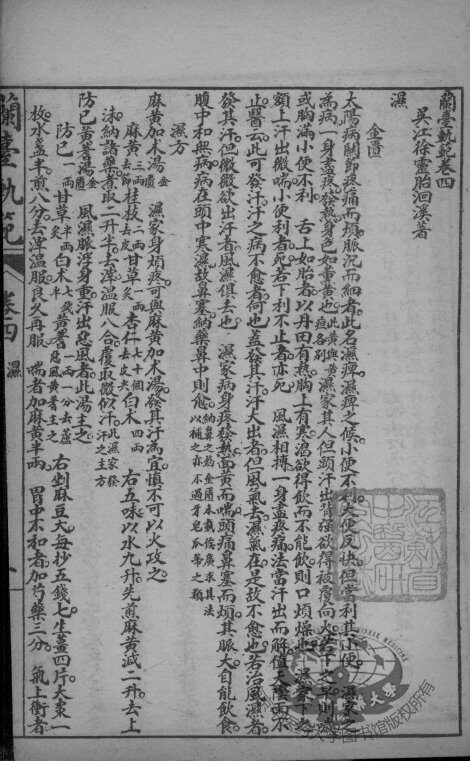 蘭臺軌範卷四
吳江徐靈胎洄溪著
濕
金匱
太陽病關節疼痛而煩脈沉而細者此名濕痺濕痺之候小便不利大便反快但當利其小便 濕家之
為病一身盡疼發熱身色如熏黃也 此黃與黃疸各別 濕家其人但頭汗出背強欲得被覆向火若下之早則
或胸滿小便不利 舌上如胎者以丹田有熱胸上有寒渴欲得飲而不能飲則口燥煩也 濕家下之
額上汗出微喘小便利者死若下利不止者亦死 風濕相搏一身盡疼痛法當汗出而解值天陰雨不
止醫云此可發汗汗之病不愈者何也蓋發其汗汗大出者但風氣去濕氣在是故不愈也若治風濕者
發其汗但微微欲出汗者風濕俱去也 濕家病身疼發熱面黃而喘頭痛鼻塞而煩其脈大自能飲食
腹中和無病病在頭中寒濕故鼻塞納藥鼻中則愈 納鼻之藥金匱未載後廣求其法以補之亦不過牙皂瓜蒂之類
濕方
麻黃加木湯 金匱 濕家身煩疼可與麻黃加木湯發其汗為宜慎不可以火攻之
麻黃 三兩去節 桂枝 二兩去皮 甘草 一兩炙 杏仁 七十個去皮尖 白木 四兩 右五味以水九升先煮麻黃減二升去上
沫納諸藥煮取二升半去滓溫服八合覆取微似汗 此濕家發汗之主方
防己黃耆湯 金匱 風濕脈浮身重汗出惡風者此湯主之
防己 一兩 甘草 半兩炙 白木 七錢半 黃耆 一兩一分去蘆惡風黃耆主之 右剉麻豆大每抄五錢七生薑四片大棗一
枚水盞半煎八分去滓溫服良久再服 喘者加麻黃半兩 胃中不和者加芍藥三分 氣上衝者
蘭臺軌範 卷四 濕